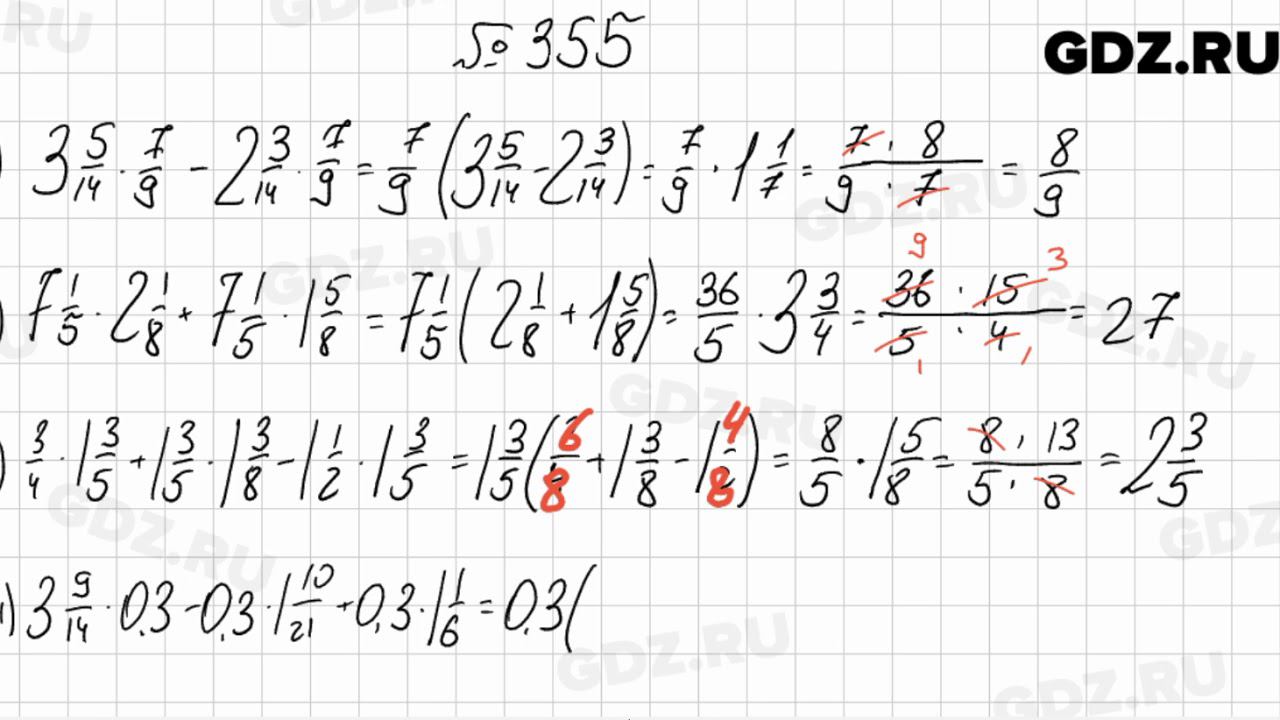 № 355
GDZ.RU
) 3 5/14 · 7/9 - 2 3/14 · 7/9 = 7/9 (3 5/14 - 2 3/14) = 7/9 · 1 1/7 = 7 · 8 / 9 · 7 = 8/9
) 7 1/5 · 2 1/8 + 7 1/5 · 1 5/8 = 7 1/5 (2 1/8 + 1 5/8) = 36/5 · 3 3/4 = 36 9 · 15 3 / 5 1 · 4 1 = 27
) 3/4 · 1 3/5 + 1 3/5 · 1 3/8 - 1 1/2 · 1 3/5 = 1 3/5 (6/8 + 1 3/8 - 1 4/8) = 8/5 · 1 5/8 = 8 · 13 / 5 · 8 = 2 3/5
) 3 9/14 · 0,3 - 0,3 · 1 10/21 + 0,3 · 1 1/6 = 0,3 (